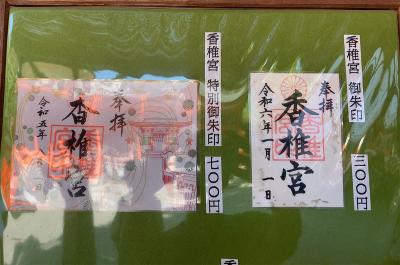 香椎宮 御朱印 三〇〇円
奉拝
香椎宮
令和六年一月一日
香椎宮 特別御朱印 七〇〇円
奉拝
香椎宮
令和五年
香